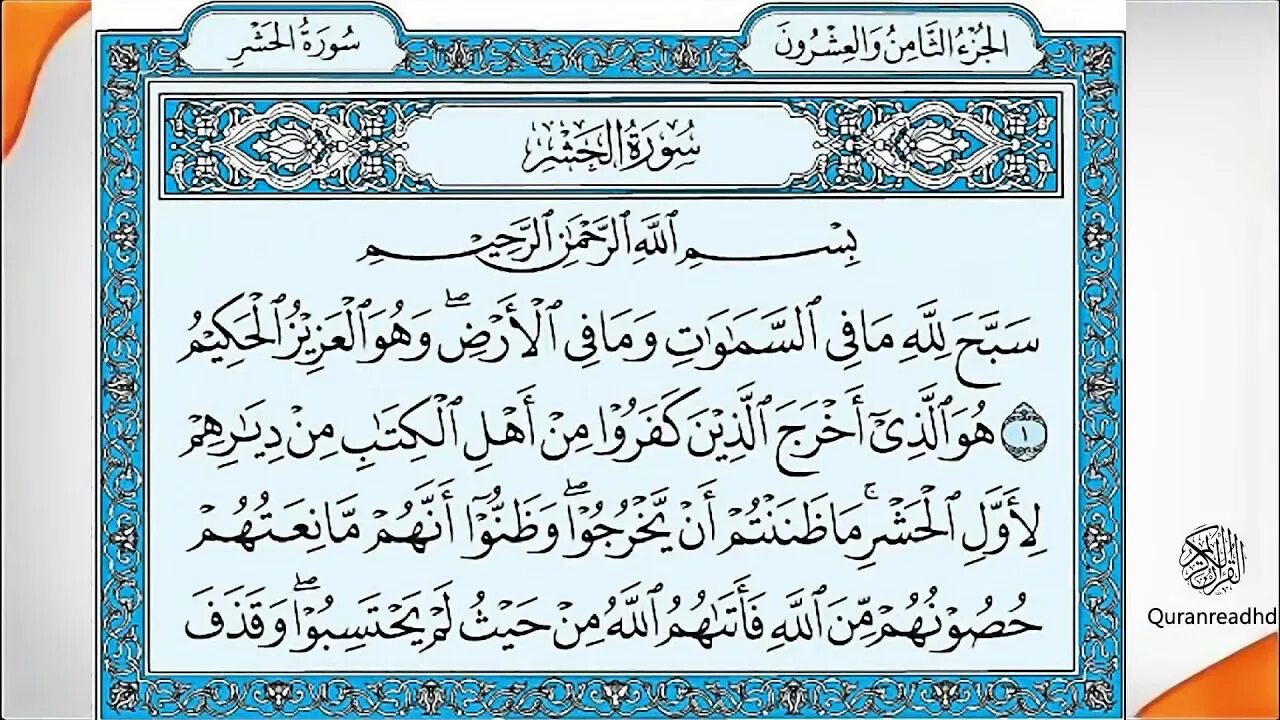 الجزء الثامن والعشرون
سورة الحشر
سُورَةُ الحَشْرِ
بِسْمِ اللَّهِ الرَّحْمَٰنِ الرَّحِيمِ
سَبَّحَ لِلَّهِ مَا فِي السَّمَٰوَٰتِ وَمَا فِي الْأَرْضِ ۖ وَهُوَ الْعَزِيزُ الْحَكِيمُ
١ هُوَ الَّذِيٓ أَخْرَجَ الَّذِينَ كَفَرُوا مِنْ أَهْلِ الْكِتَٰبِ مِنْ دِيَٰرِهِمْ
لِأَوَّلِ الْحَشْرِ ۚ مَا ظَنَنْتُمْ أَنْ يَّخْرُجُوا ۖ وَظَنُّوٓا أَنَّهُمْ مَّانِعَتُهُمْ
حُصُوْنُهُمْ مِّنَ اللَّهِ فَأَتَٰهُمُ اللَّهُ مِنْ حَيْثُ لَمْ يَحْتَسِبُوا ۖ وَقَذَفَ
القرآن الكريم
Quranreadhd